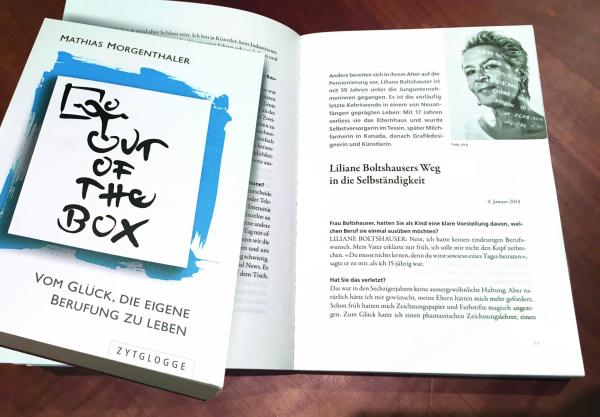 MATHIAS MORGENTHALER
OUT
OF
THE
BOX
VOM GLÜCK, DIE EIGENE
BERUFUNG ZU LEBEN
ZYTGLOGGE
wird aber Schluss sein. Ich bin ja Künstler, kein Industrieun-
Andere bereiten sich in ihrem Alter auf die
Pensionierung vor, Liliane Boltshauser ist
mit 59 Jahren unter die Jungunterneh-
merinnen gegangen. Es ist die vorläufig
letzte Kehrtwende in einem von Neuan-
fängen geprägten Leben: Mit 17 Jahren
verliess sie das Elternhaus und wurde
Selbstversorgerin im Tessin, später Milch-
farmerin in Kanada, danach Grafikdesi-
gnerin und Künstlerin.
Liliane Boltshausers Weg
in die Selbständigkeit
4. Januar 2014
Frau Boltshauser, hatten Sie als Kind eine klare Vorstellung davon, wel-
chen Beruf Sie einmal ausüben möchten?
LILIANE BOLTSHAUSER: Nein, ich hatte keinen eindeutigen Berufs-
wunsch. Mein Vater erklärte mir früh, ich solle mir nicht den Kopf zerbre-
chen. «Du musst nichts lernen, denn du wirst sowieso eines Tages heiraten»,
sagte er zu mir, als ich 15-jährig war.
Hat Sie das verletzt?
Das war in den Sechzigerjahren keine aussergewöhnliche Haltung. Aber na-
türlich hätte ich mir gewünscht, meine Eltern hätten mich mehr gefördert.
Schon früh hatten mich Zeichnungspapier und Farbstifte magisch angezo-
gen. Zum Glück hatte ich einen phantastischen Zeichnungslehrer, einen
77